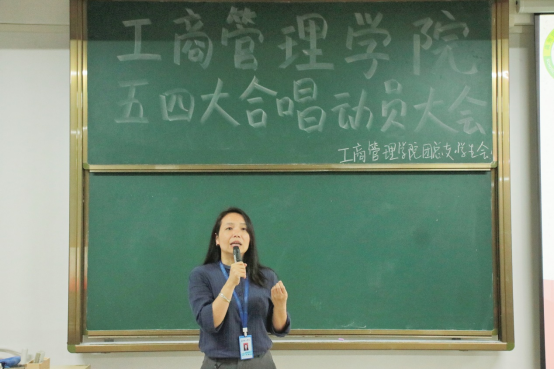 工商管理学院
五四大合唱动员大会
工商管理学院团总支·学生会